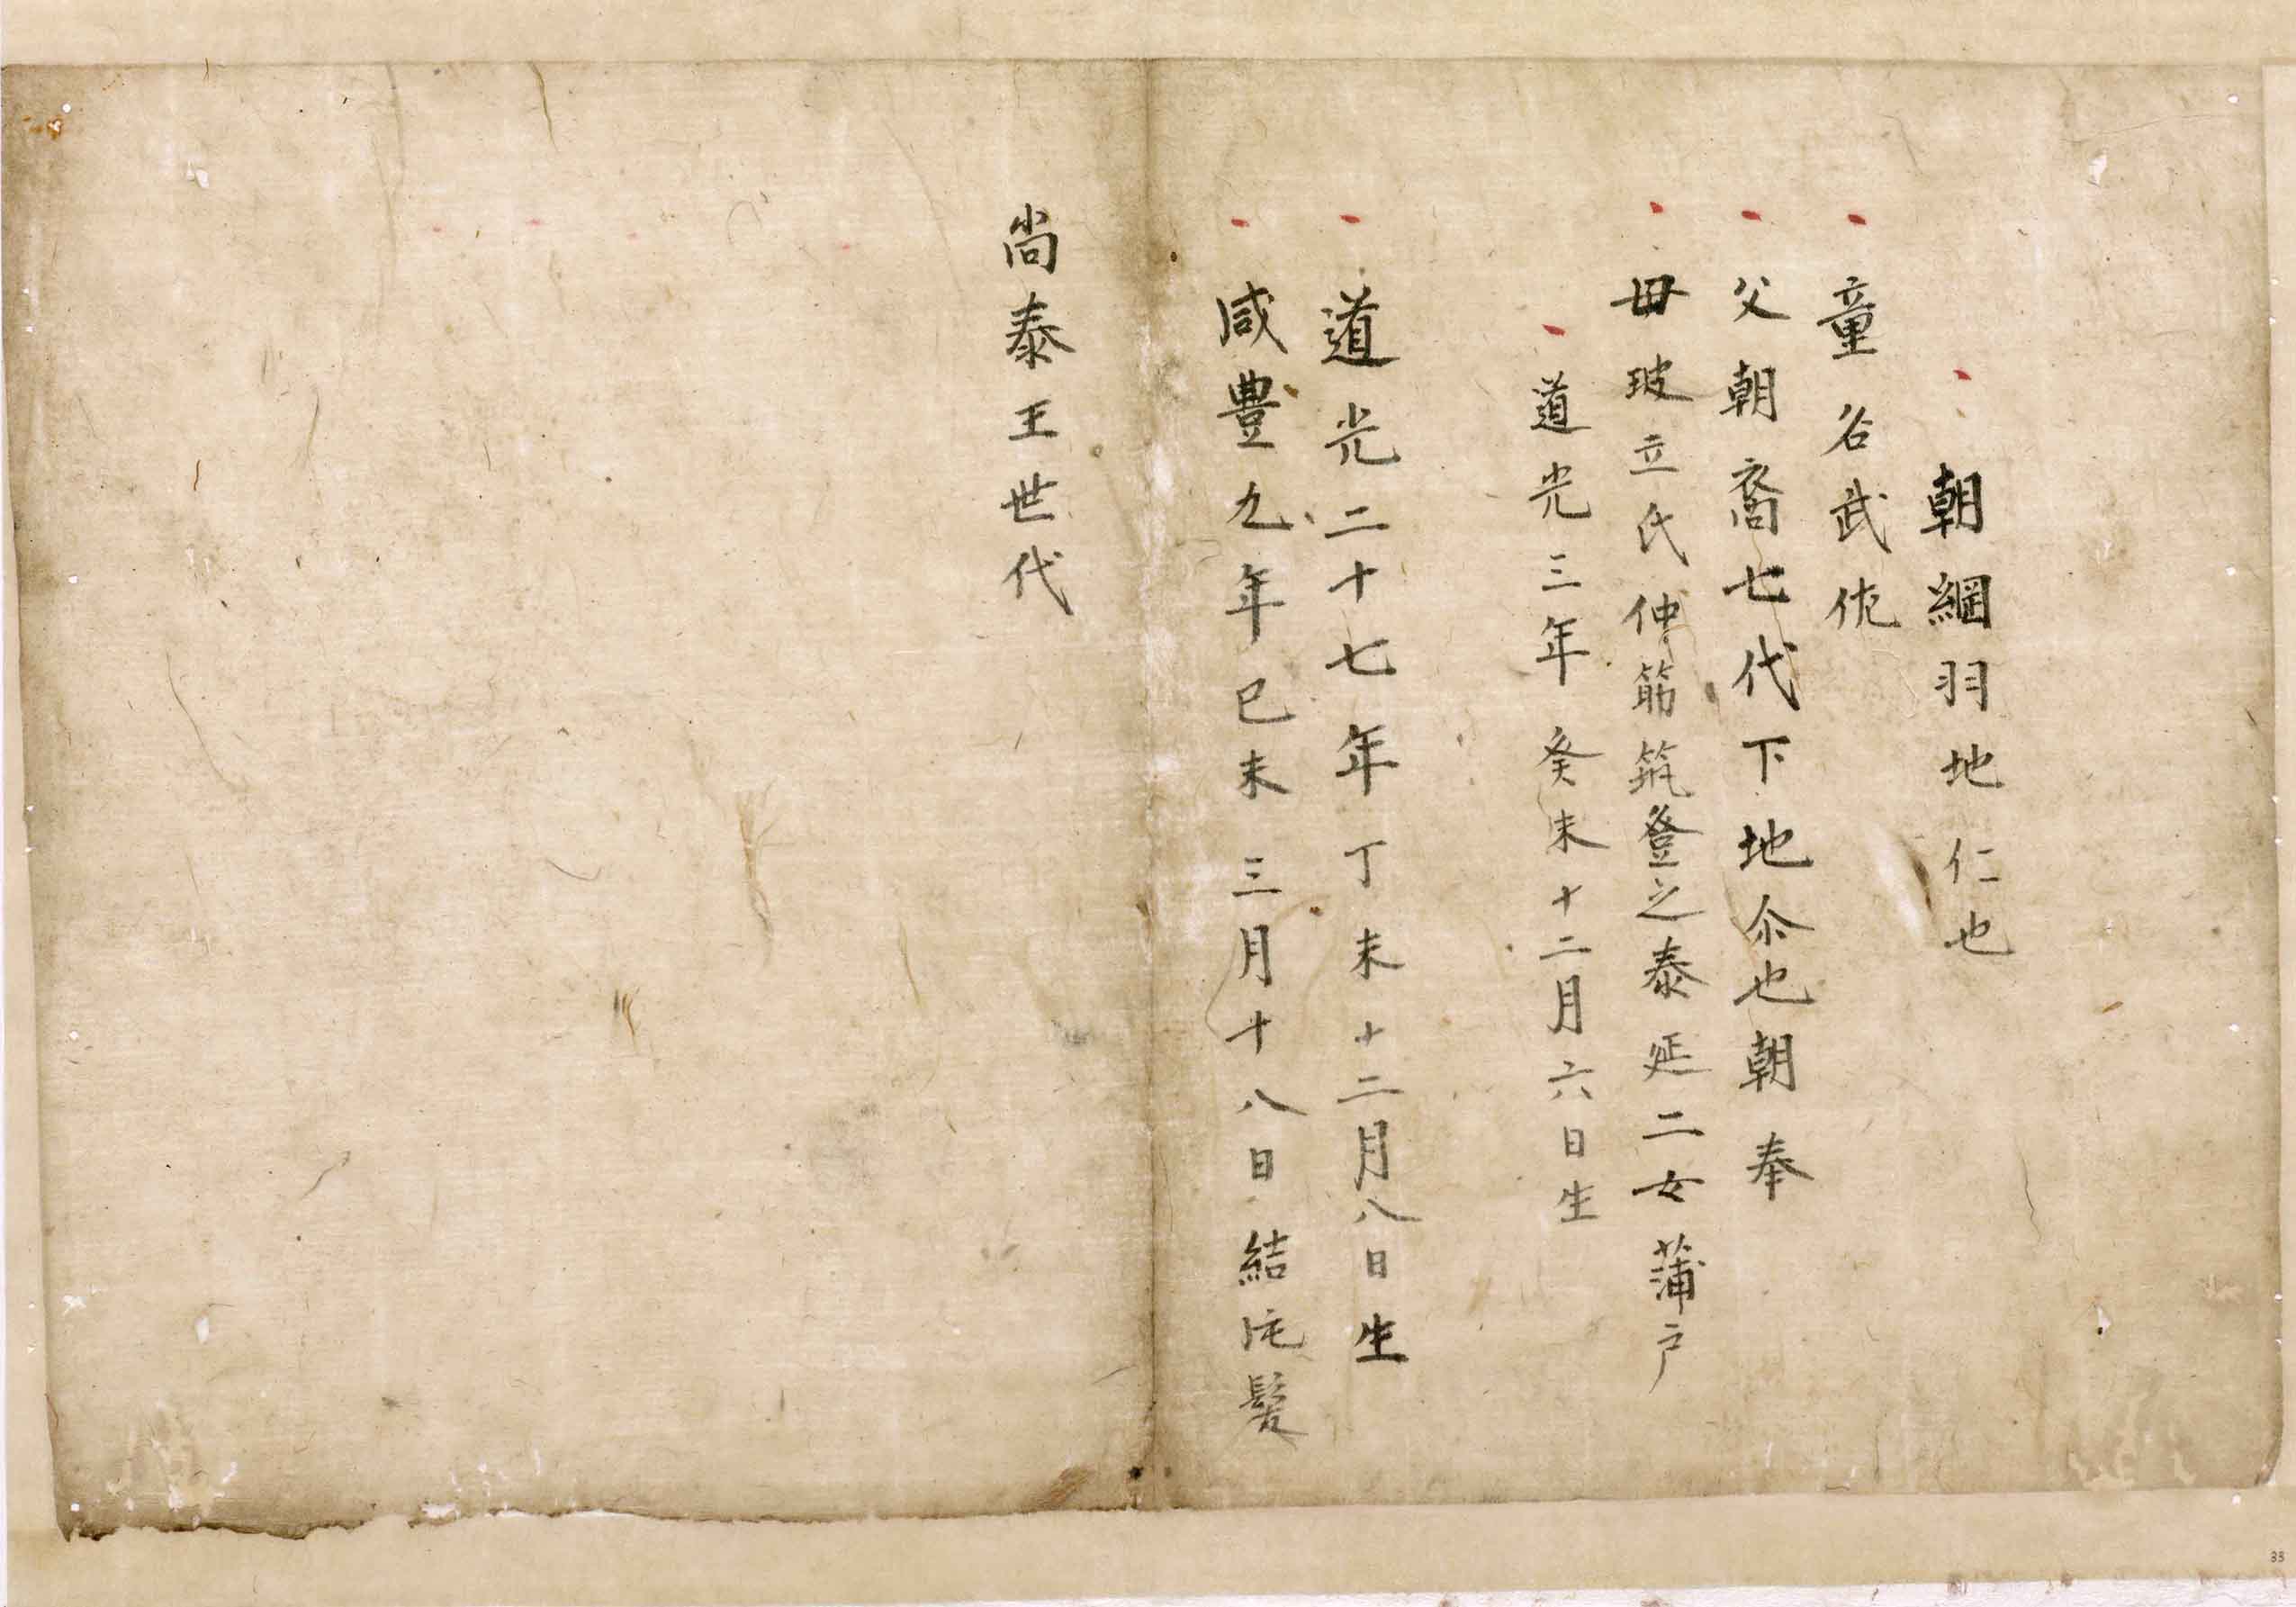 朝綱羽地仁也
童名武侊
父朝裔七代下地尒也朝奉
毋玻立氏仲筋筑登之泰延二女蒲戸
道光三年癸未十二月六日生
道光二十七年丁未十二月八日生
咸豊九年巳未三月十八日結髪
尚泰王世代
35